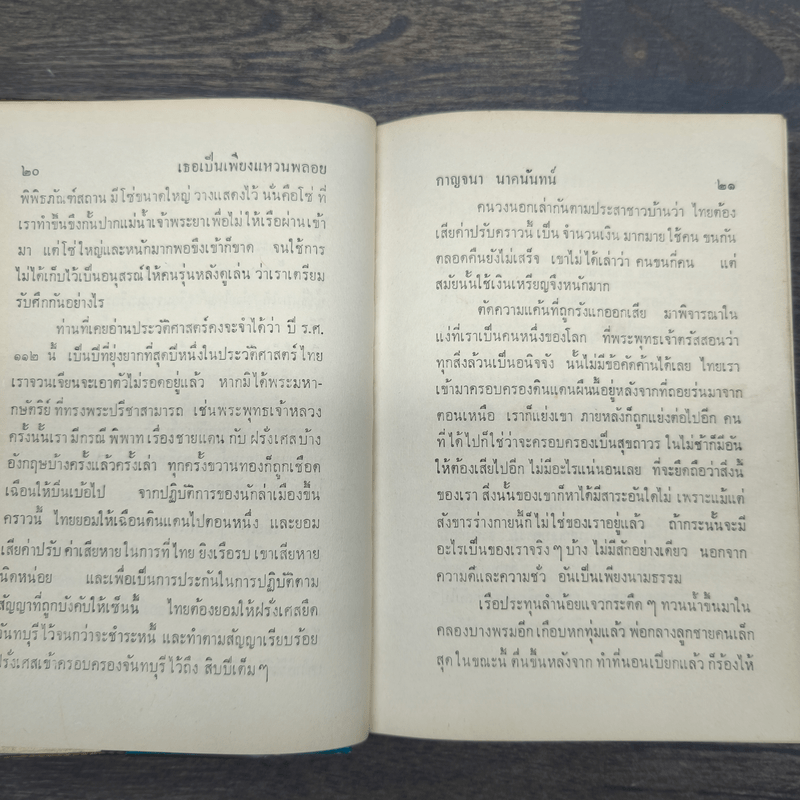 ๒๐ เธอเป็นเพียงแหวนพลอย
พิพิธภัณฑ์สถาน มีโซ่ขนาดใหญ่ วางแสดงไว้ นั่นคือโซ่ ที่
เราทำขึ้นขึงกั้นปากแม่น้ำเจ้าพระยาเพื่อไม่ให้เรือผ่านเข้า
มา แต่โซ่ใหญ่และหนักมากพอขึงเข้าก็ขาด จนใช้การ
ไม่ได้เก็บไว้เป็นอนุสรณ์ให้คนรุ่นหลังดูเล่น ว่าเราเตรียม
รับศึกกันอย่างไร
ท่านที่เคยอ่านประวัติศาสตร์คงจะจำได้ว่า ปี ร.ศ.
๑๑๒ นี้ เป็นปีที่ยุ่งยากที่สุดปีหนึ่งในประวัติศาสตร์ไทย
เราจวนเจียนจะเอาตัวไม่รอดอยู่แล้ว หากมิได้พระมหา-
กษัตริย์ ที่ทรงพระปรีชาสามารถ เช่นพระพุทธเจ้าหลวง
ครั้งนั้นเรา มีกรณี พิพาท เรื่องชายแดน กับ ฝรั่งเศส บ้าง
อังกฤษบ้างครั้งแล้วครั้งเล่า ทุกครั้งขวานทองก็ถูกเชือด
เฉือนให้บิ่นเบ้อไป จากปฏิบัติการของนักล่าเมืองขึ้น
คราวนี้ ไทยยอมให้เฉือนดินแดนไปตอนหนึ่ง และยอม
เสียค่าปรับ ค่าเสียหาย ในการที่ ไทย ยิงเรือรบ เขาเสียหาย
นิดหน่อย และเพื่อเป็นการประกันในการปฏิบัติตาม
สัญญาที่ถูกบังคับให้เซ็นนี้ ไทยต้องยอมให้ฝรั่งเศสยึด
จันทบุรี ไว้จนกว่าจะชำระหนี้ และทำตามสัญญาเรียบร้อย
ฝรั่งเศสเข้าครอบครองจันทบุรี ไว้ถึง สิบปีเต็ม ๆ
กาญจนา นาคนันทน์ ๒๑
คนวงนอกเล่ากันตามประสาชาวบ้านว่า ไทยต้อง
เสียค่าปรับคราวนี้ เป็น จำนวนเงิน มากมาย ใช้คน ขนกัน
ตลอดคืนยังไม่เสร็จ เขาไม่ได้เล่าว่า คนขนกี่คน แต่
สมัยนั้นใช้เงินเหรียญจึงหนักมาก
ตัดความแค้นที่ถูกรังแกออกเสีย มาพิจารณาใน
แง่ที่เราเป็นคนหนึ่งของโลก ที่พระพุทธเจ้าตรัสสอนว่า
ทุกสิ่งล้วนเป็นอนิจจัง นั้นไม่มีข้อคัดค้านได้เลย ไทยเรา
เข้ามาครอบครองดินแดนผืนนี้อยู่หลังจากที่ถอยร่นมาจาก
ตอนเหนือ เราก็แย่งเขา ภายหลังก็ถูกแย่งต่อไปอีก คน
ที่ ได้ ไปก็ใช่ว่าจะครอบครองเป็นสุขถาวร ในไม่ช้าก็มีอัน
ให้ต้องเสียไปอีก ไม่มีอะไรแน่นอนเลย ที่จะยึดถือว่าสิ่งนี้
ของเรา สิ่งนั้นของเขาก็หาได้มีสาระอันใดไม่ เพราะแม้แต่
สังขารร่างกายนี้ก็ไม่ใช่ของเราอยู่แล้ว ถ้ากระนั้นจะมี
อะไรเป็นของเราจริง ๆ บ้าง ไม่มีสักอย่างเดียว นอกจาก
ความดีและความชั่ว อันเป็นเพียงนามธรรม
เรือประทุนลำน้อยแจวกระตืด ๆ ทวนน้ำขึ้นมาใน
คลองบางพรมอีก เกือบหกทุ่มแล้ว พ่อกลางลูกชายคนเล็ก
สุด ในขณะนี้ ตื่นขึ้นหลังจาก ทำที่นอนเปียกแล้ว ก็ร้องไห้